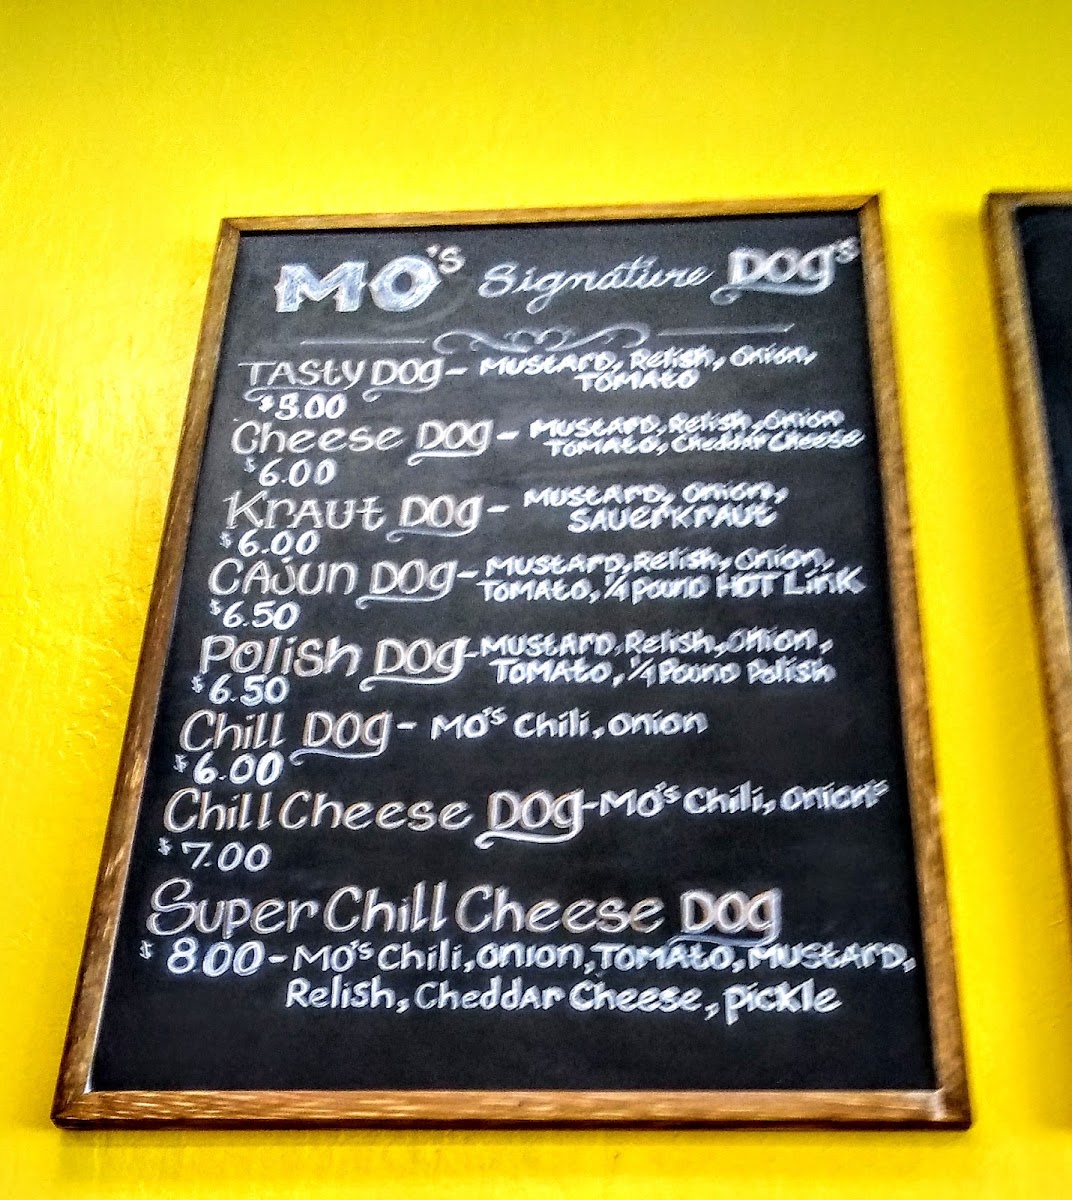 MO's Signature DOG's
TASty DOG - MUSTARD, Relish, Onion,
TOMATO
$5.00
Cheese DOG - MUSTARD, Relish, Onion
TOMATO, Cheddar Cheese
$6.00
KRAUT DOG - MUSTARD, Onion,
SAUERKRAUT
$6.00
CAJUN DOG - MUSTARD, Relish, Onion,
TOMATO, 1/4 Pound HOT Link
$6.50
Polish DOG - MUSTARD, Relish, Onion,
TOMATO, 1/4 Pound Polish
$6.50
Chill DOG - MO's Chili, Onion
$6.00
Chill Cheese DOG - MO's Chili, Onion's
$7.00
Super Chill Cheese DOG
$8.00 - MO's Chili, Onion, TOMATO, MUSTARD,
Relish, Cheddar Cheese, pickle